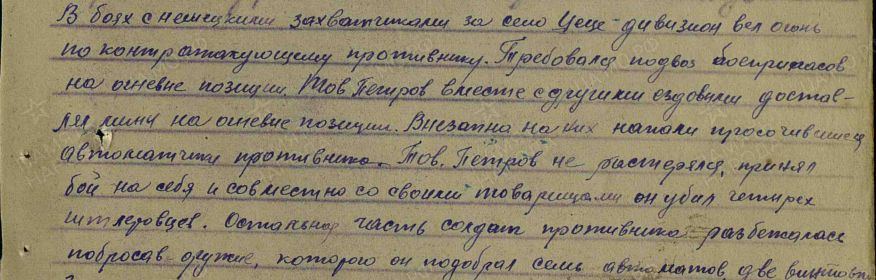 В боях с немецкими захватчиками за село Цеце дивизион вел огонь
по контратакующему противнику. Требовался подвоз боеприпасов
на огневые позиции. Тов Петров вместе с другими ездовыми достав-
лял мины на огневые позиции. Внезапна на них напали просочившиеся
автоматчики противника. Тов. Петров не растерялся, принял
бой на себя и совместно со своими товарищами он убил четырех
гитлеровцев. Остальная часть солдат противника разбежалась
побросав оружие, которого он подобрал семь автоматов, две винтовки